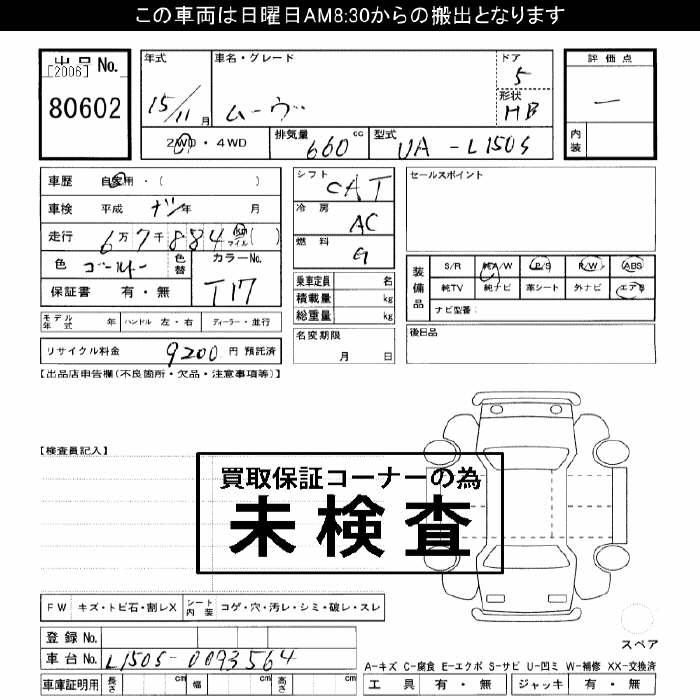 この車両は日曜日AM8:30からの搬出となります
出品No.
[2006]
80602
年式 15/11 月
車名・グレード ムーヴ
ドア 5
形状 HB
2WD・4WD 排気量 660 cc 型式 UA-L150S
評価点 一
内装
車歴 自家用・( )
車検 平成 ナシ 年 月
走行 6万7千884 km マイル ( )
色 ゴールド 色替 カラーNo. T17
保証書 有・無
モデル年式 年 ハンドル 左・右 ディーラー・並行
リサイクル料金 9200 円 預託済
シフト CAT
冷房 AC
燃料 G
乗車定員 名
積載量 kg
総重量 kg
名変期限 月 日
セールスポイント
装備品 S/R 純A/W P/S R/W ABS
純TV 純ナビ 革シート 外ナビ エアB
ナビ型番:
後日品
【出品店申告欄(不良箇所・欠品・注意事項等)】
【検査員記入】
買取保証コーナーの為
未検査
FW キズ・トビ石・割レX シート内装 コゲ・穴・汚レ・シミ・破レ・スレ
登録No.
車台No. L150S-0093564
車庫証明用 長さ cm 幅 cm 高さ cm
スペア
A-キズ C-腐食 E-エクボ S-サビ U-凹ミ W-補修 XX-交換済
工具 有・無 ジャッキ 有・無